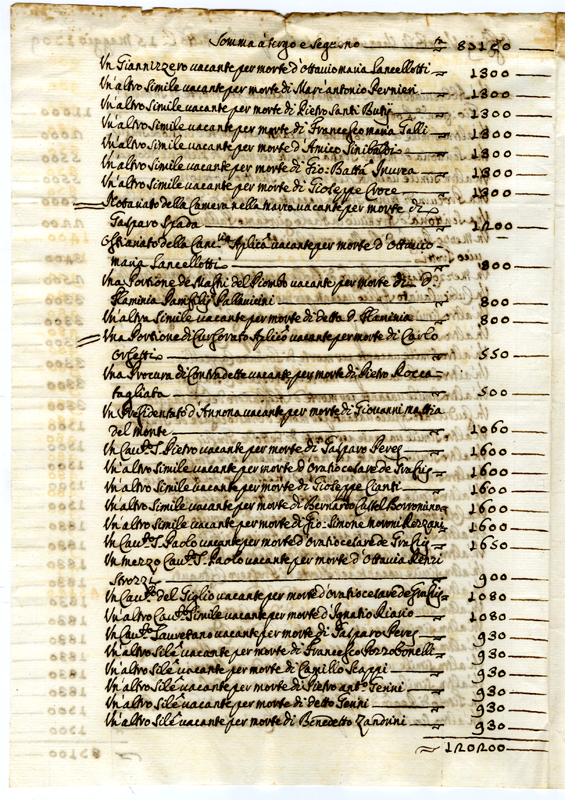 Somma à tergo e segueno — 83150
Un Giannizzero vacante per morte d'Ottavio maria Lancellotti — 1300
Un'altro Simile vacante per morte di Marc'antonio Pernieri — 1300
Un'altro Simile vacante per morte di Pietro Santi Butij — 1300
Un'altro Simile vacante per morte di Francesco maria Galli — 1300
Un'altro Simile vacante per morte d'Amico Sinibaldi — 1300
Un'altro Simile vacante per morte di Gio: Batta Invrea — 1300
Un'altro Simile vacante per morte di Gioseppe Croce — 1300
Notariato della Camera nella marca vacante per morte di
Gasparo Spada — 1200
Ostiariato della Canc.ria Aplica vacante per morte d'Ottavio
maria Lancellotti — 800
Una Portione de Mastri del Piombo vacante per morte di D.
Flaminia Pamfilij Pallavicini — 800
Un'altra Simile vacante per morte di detta D. Flaminia — 800
Una Portione di Cursorato Aplico vacante per morte di Carlo
Orsetti — 550
Una Procura di Contradette vacante per morte di Pietro Rocca=
tagliata — 500
Un Presidentato d'Annona vacante per morte di Giovanni mattia
del monte — 1060
Un Cav.to S. Pietro vacante per morte di Gasparo Perez — 1600
Un'altro Simile vacante per morte d'Oratio cesare de — 1600
Un'altro Simile vacante per morte di Gioseppe Cianti — 1600
Un'altro Simile vacante per morte di Bernardo Castel Borromino — 1600
Un'altro Simile vacante per morte di Gio: Simone Moroni — 1600
Un Cav.to S. Paolo vacante per morte d'Oratio cesare de — 1650
Un mezzo Cav.to S. Paolo vacante per morte d'Ottavia Renzi
Strozzi — 900
Un Cav.to del Giglio vacante per morte d'Oratio cesare de — 1080
Un'altro Cav.to Simile vacante per morte d'Ignatio Riario — 1080
Un Cav.to Lauretano vacante per morte di Gasparo Perez — 930
Un'altro Sile vacante per morte di Francesco Pozzobonelli — 930
Un'altro Sile vacante per morte di Camillo Scappi — 930
Un'altro Sile vacante per morte di Pietro ant.o Jenni — 930
Un'altro Sile vacante per morte di detto Jenni — 930
Un'altro Sile vacante per morte di Benedetto Zandrini — 930
120200